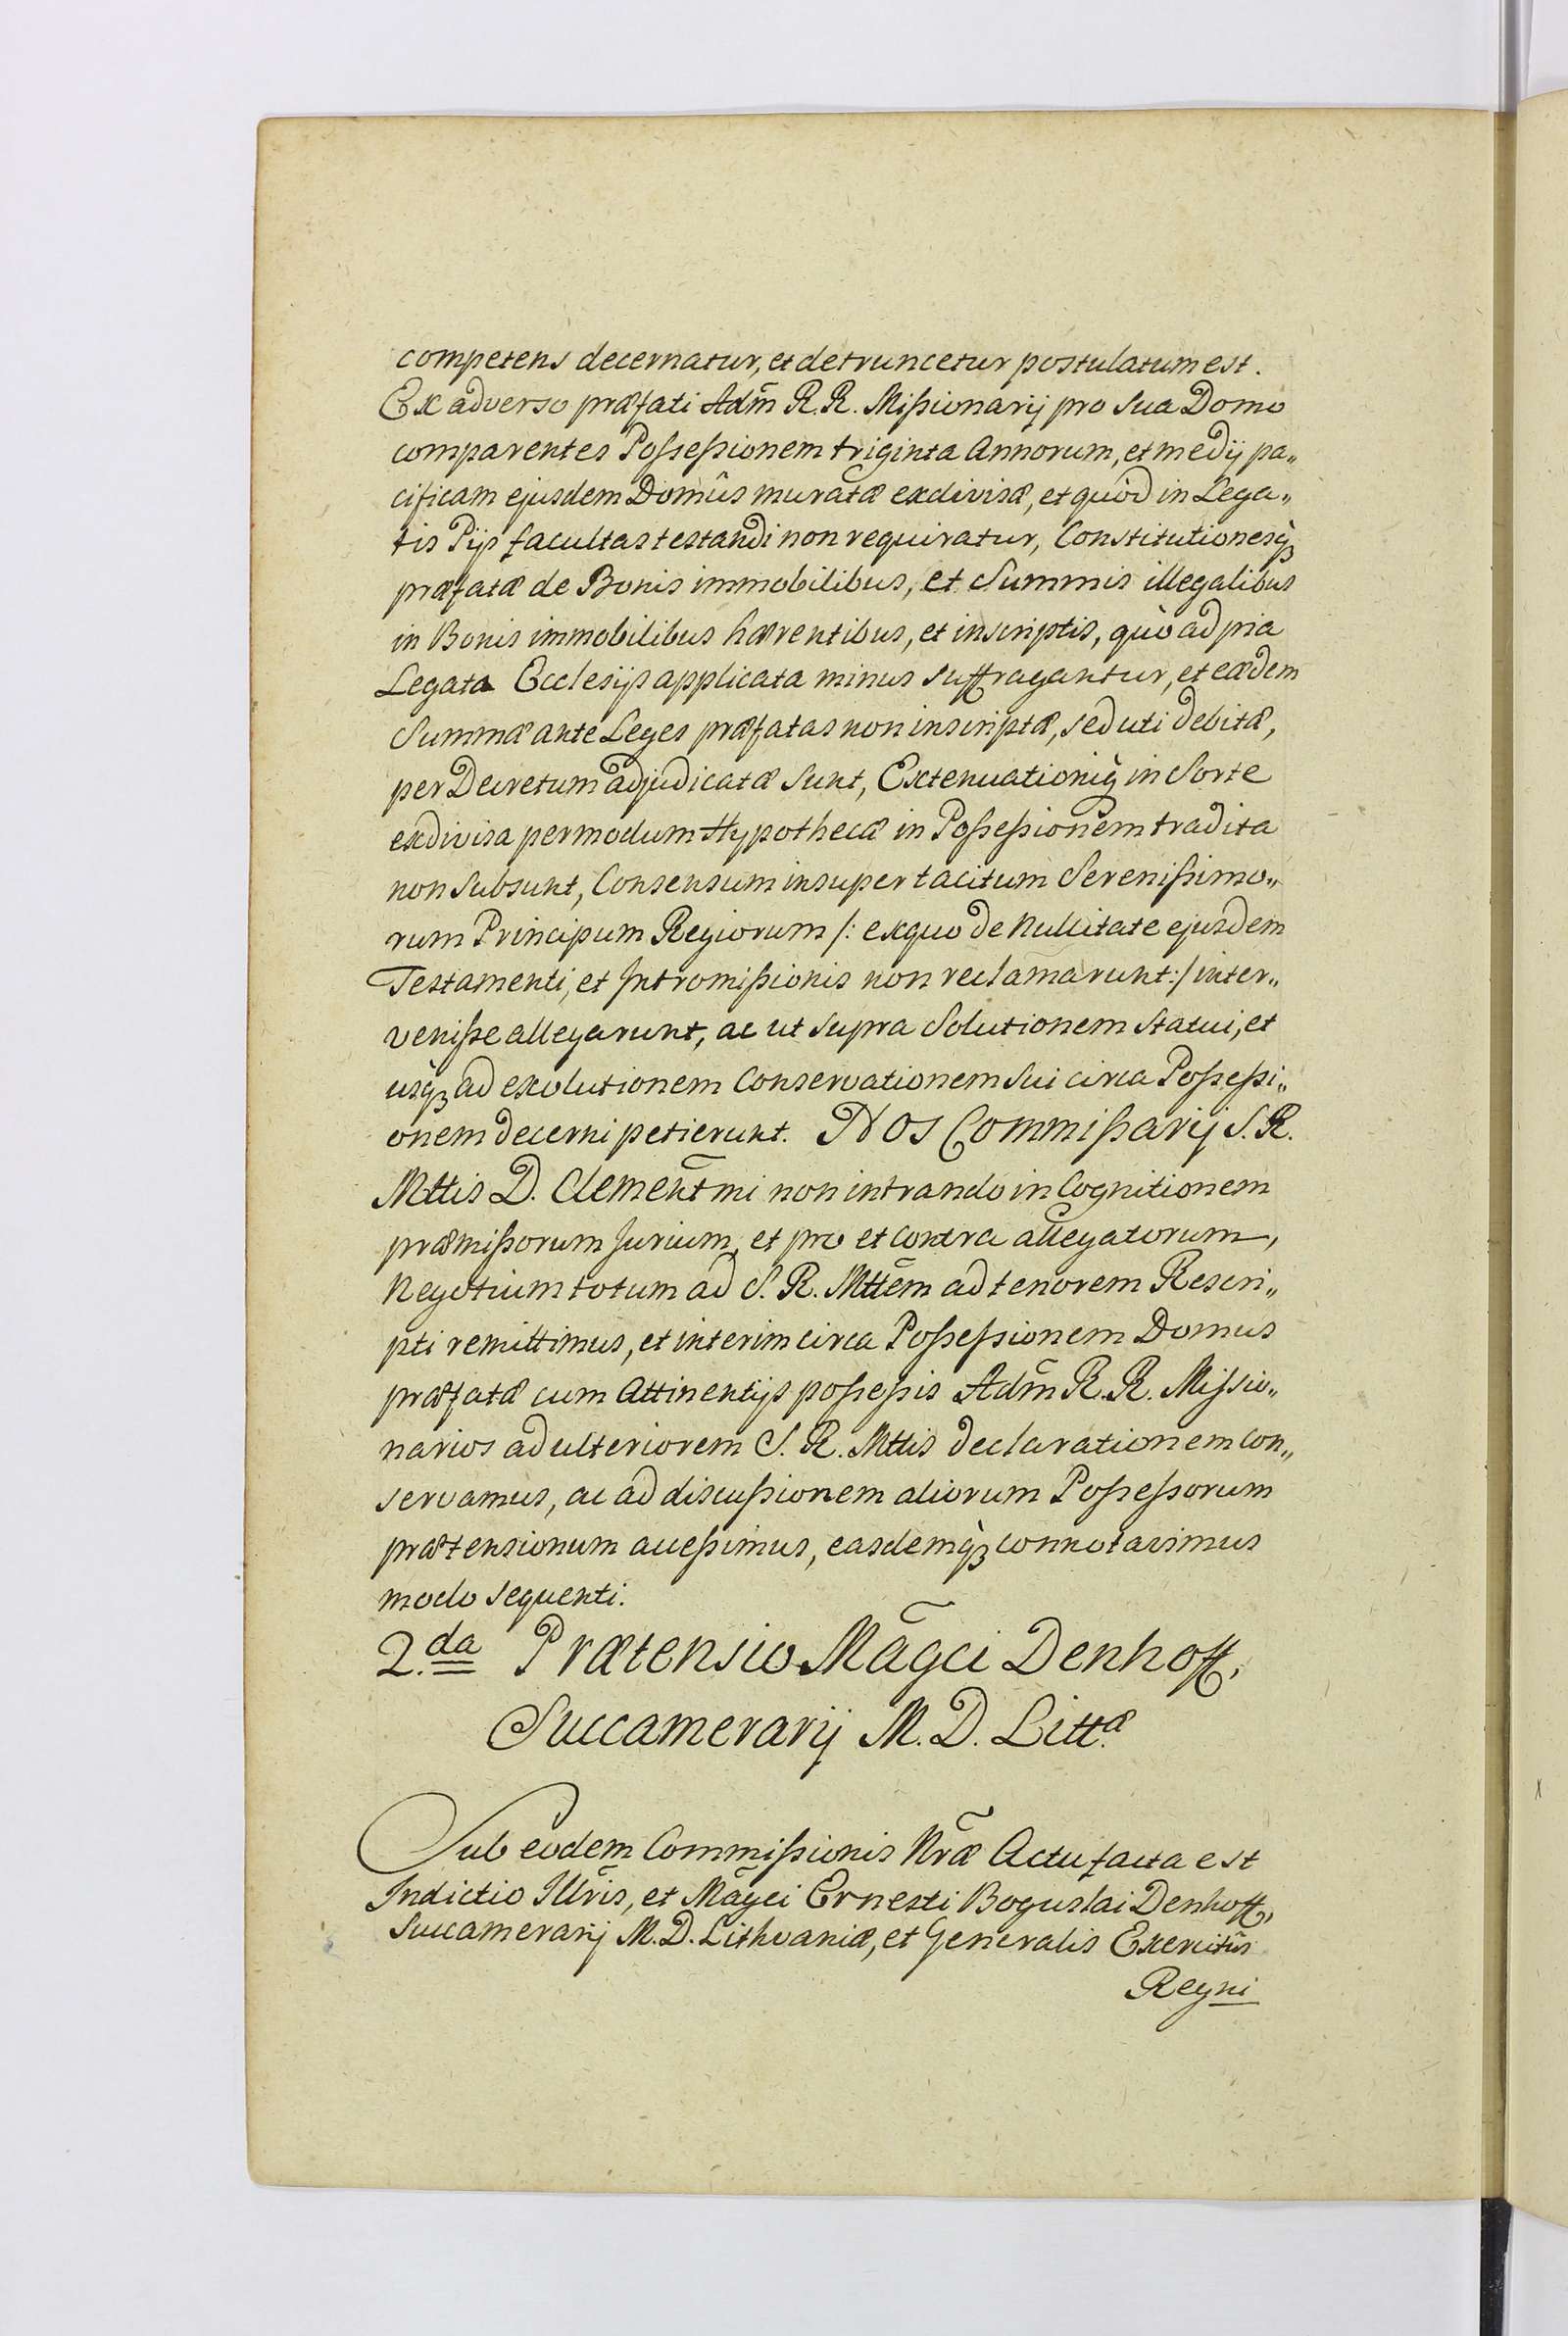 competens decernatur, et detruncetur postulatum est.
Ex adverso præfati Adm̃ R. R. Mißionarij pro sua Domo
comparentes Poßeßionem triginta Annorum, et medij pa„
cificam ejusdem Domûs muratæ exdivisæ, et quòd in Lega„
tis Pijs facultas testandi non requiratur, Constitutionesq̀ꝫ
præfatæ de Bonis immobilibus, et Summis illegalibus
in Bonis immobilibus hærentibus, et inscriptis, quò ad pia
Legata Ecclesijs applicata minus suffragantur, et eædem
Summæ ante Leges præfatas non inscriptæ, sed uti debitæ,
per Decretum adjudicatæ sunt, Extenuationiq̀ꝫ in Sorte
exdivisa per modum Hypothecæ in Poßeßionem tradita
non subsunt, Consensum insuper tacitum Serenißimo„
rum Principum Regiorum /: exquo de Nullitate ejusdem
Testamenti, et Intromißionis non reclamarunt :/ inter„
veniße allegarunt, ac ut supra Solutionem statui, et
usq̀ꝫ ad exolutionem Conservationem sui circa Poßeßi„
onem decerni petierunt. Nos Commißarij S. R.
Mttis D. Clemeñtmi non intrando in Cognitionem
præmißorum Jurium, et pro et contra allegatorum,
Negotium totum ad S. R. Mttem̃ ad tenorem Rescri„
pti remittimus, et interim circa Poßeßionem Domus
præfatæ cum Attinentijs poßeßis Adm̃ R. R. Missio„
narios ad ulteriorem S. R. Mttis declarationem con„
servamus, ac ad discußionem aliorum Poßeßorum
prætensionum acceßimus, easdemq̀ꝫ connotavimus
modo sequenti.
2.da Prætensio Mãgci Denhoff,
Succamerarij M. D. Litt.æ
Sub eodem Commißionis Nr̃æ Actu facta est
Indictio Illr̃is, et Mãgci Ernesti Boguslai Denhoff,
Succamerarij M. D. Lithvaniæ, et Generalis Exercitûs
Regni